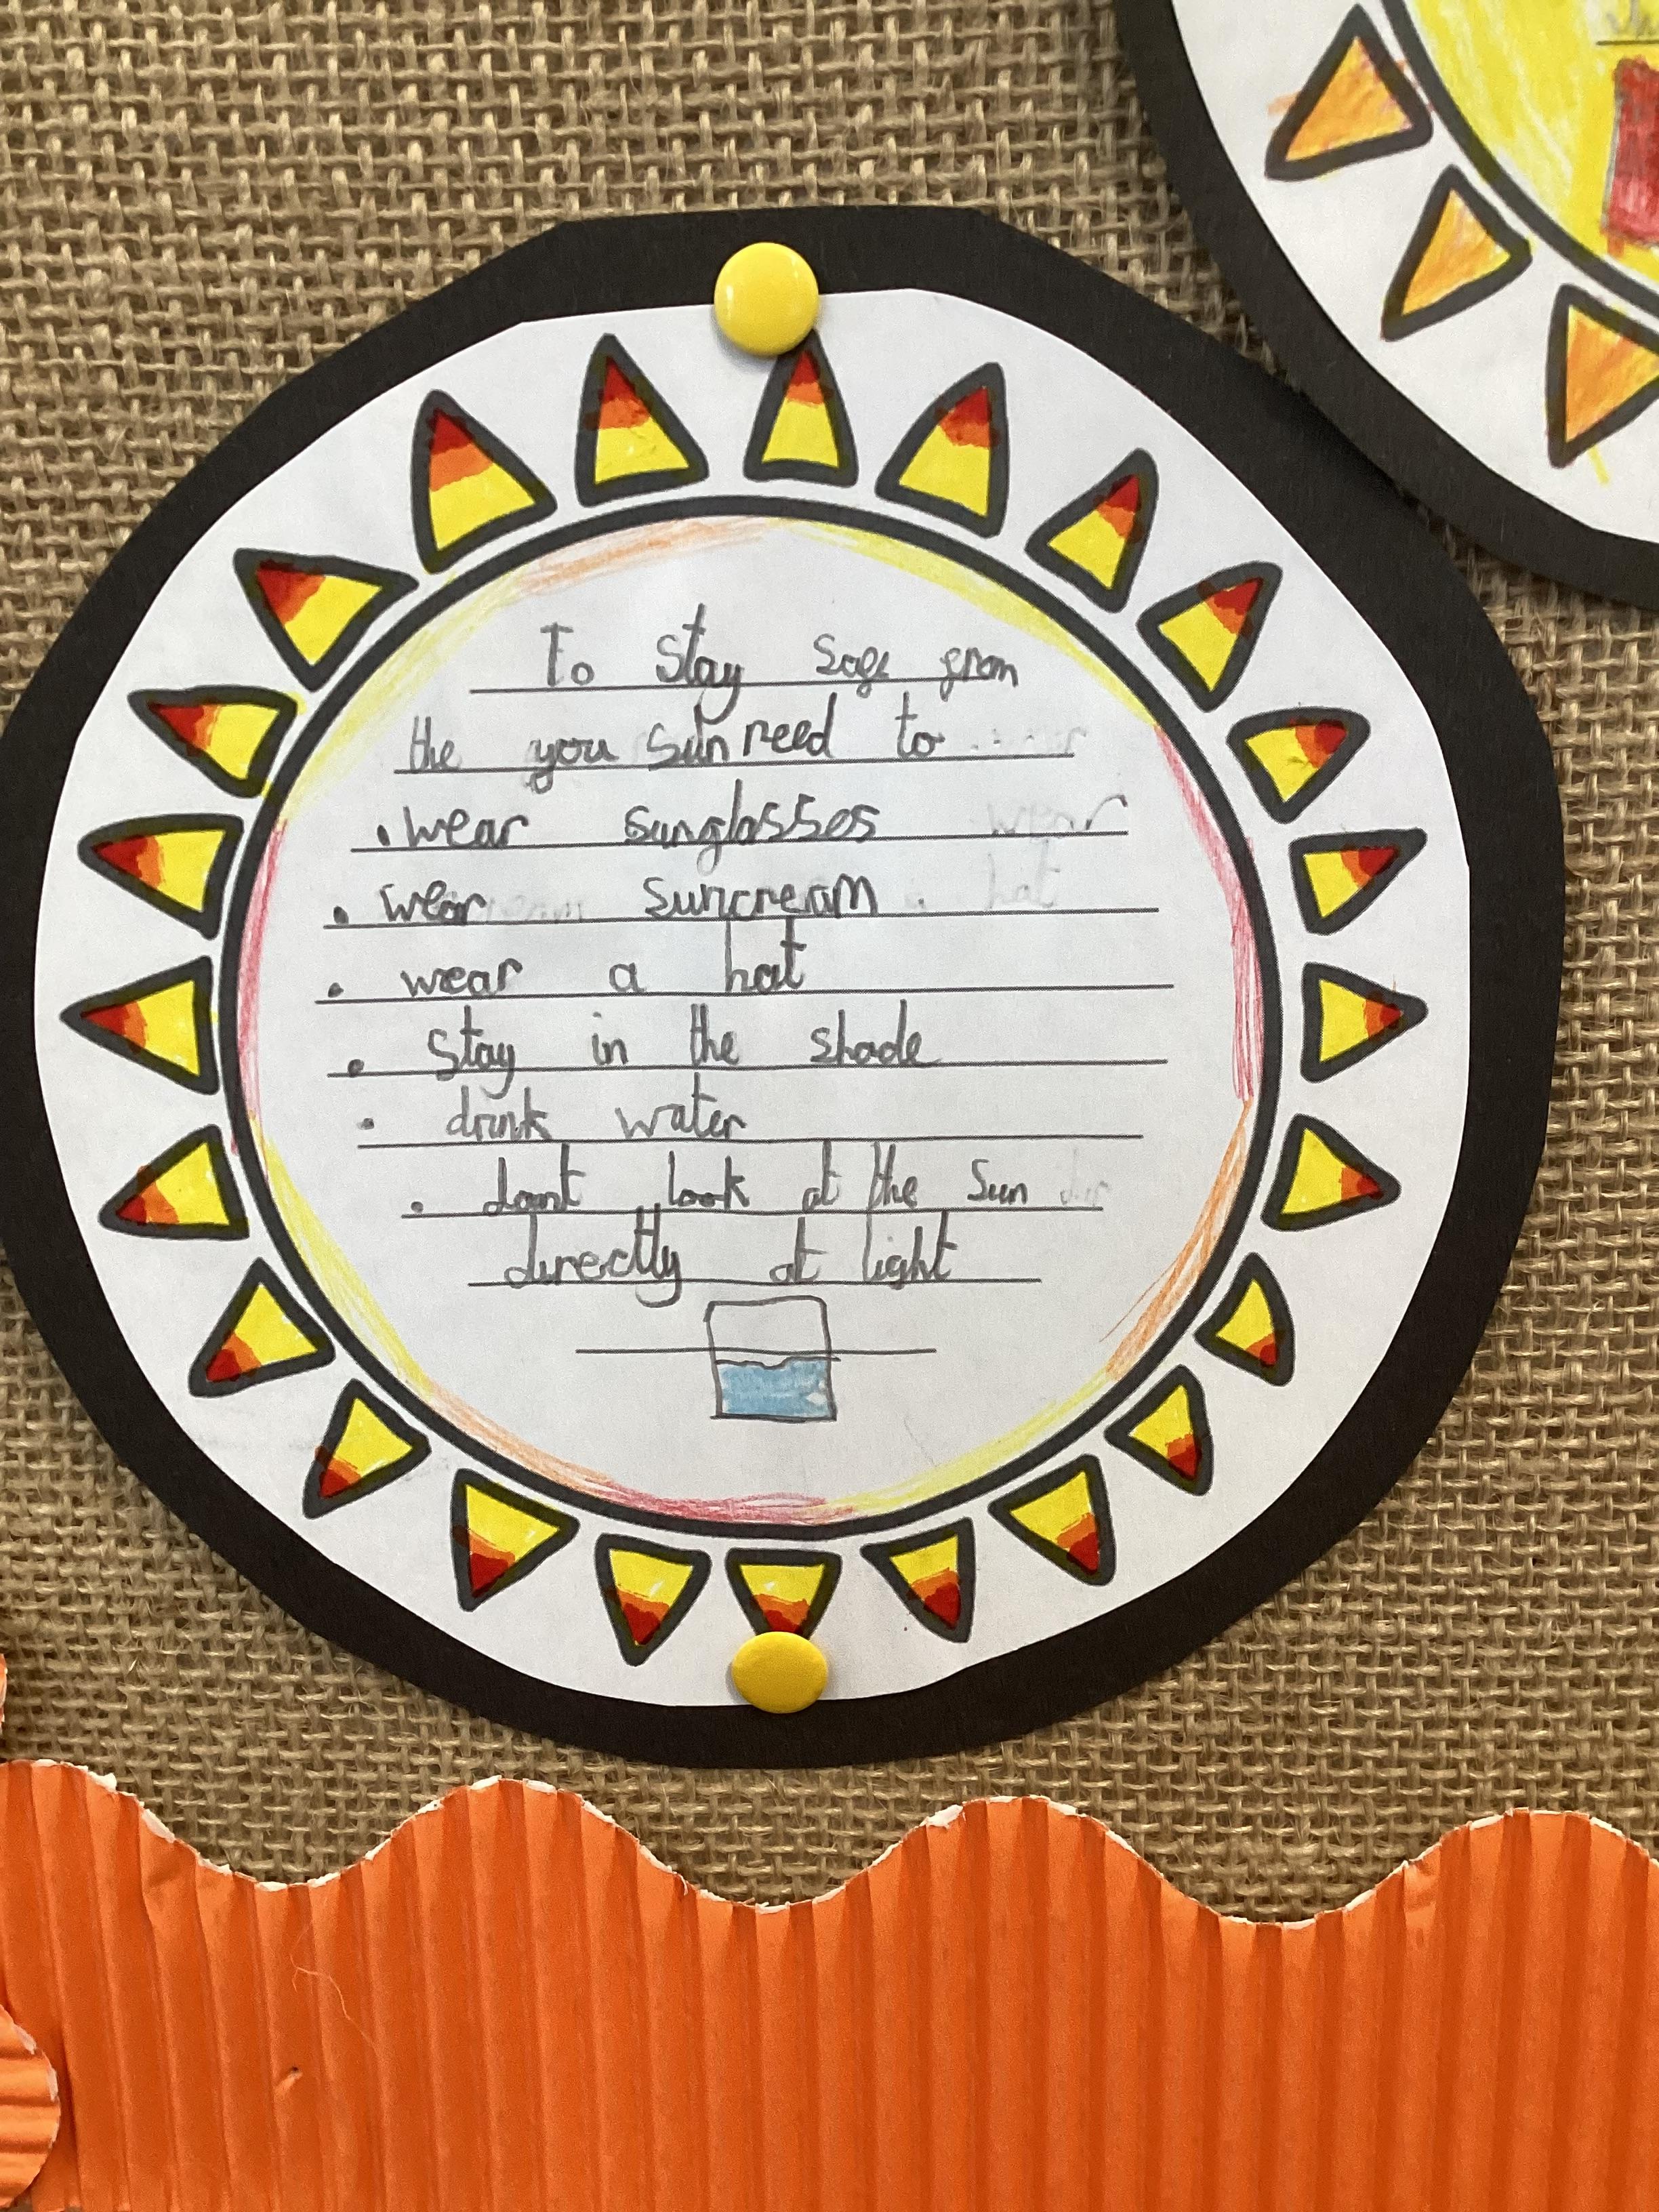 To stay safe from
the you sun need to
. wear sunglasses
. wear suncream
. wear a hat
. stay in the shade
. drink water
. dont look at the Sun
directly at light